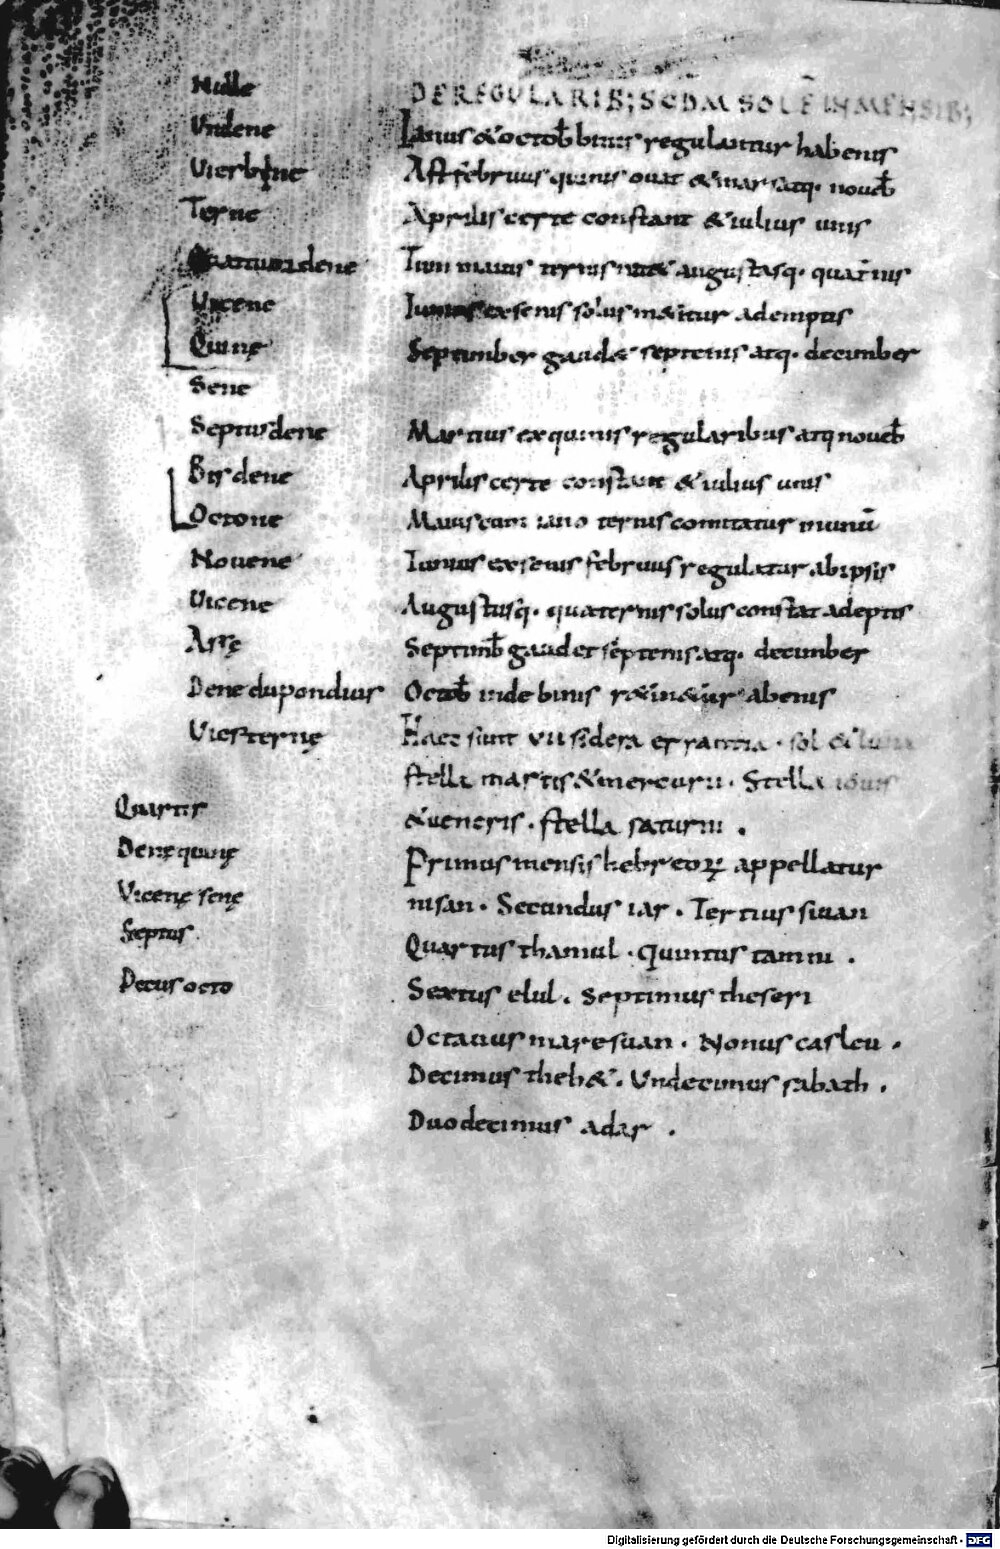 Nulle
Undene
Vierbine
Terne
Quatuordene
Vicene
Quinę
Sene
Septusdene
Bisdene
Octone
Novene
Vicene
Assę
Dene dupondius
Viesternę
Quartis
Denę quinę
Vicenę senę
Septus
Decus octo
DE REGULARIB; SCDM SOLĒ IN MENSIB;
Ianus & octob binis regulantur habenis
Ast februus quinis ovat & mars atq. noveb
Aprilis certe constant & iulius unis
Tum maius ternis augustasq. quat̄nis
Iunius exsenis solus mā&itur ademptis
September gaud& septenis atq. december
Martius ex quinis regularibus atq noveb
Aprilis certe constant & iulius unis
Maius cum iano ternis comitatur inunū
Iunius exsenis februus regulatur abipsis
Augustusq. quaternis solus constat adeptis
Septimb gaudet septenis atq. december
Octob inde binis abenis
Haec sunt VII sidera errantia. sol & luna
stella martis & mercurii. Stella iovis
& veneris. stella saturni.
Primus mensis hebreoꝝ appellatur
nisan. Secundus iar. Tertius sivan
Quartus thamul. quintus tamiu.
Sextus elul. Septimus theseri
Octavus maresuan. Nonus casleu.
Decimus theb&. Undecimus sabath.
Duodecimus adar.
Digitalisierung gefördert durch die Deutsche Forschungsgemeinschaft - DFG